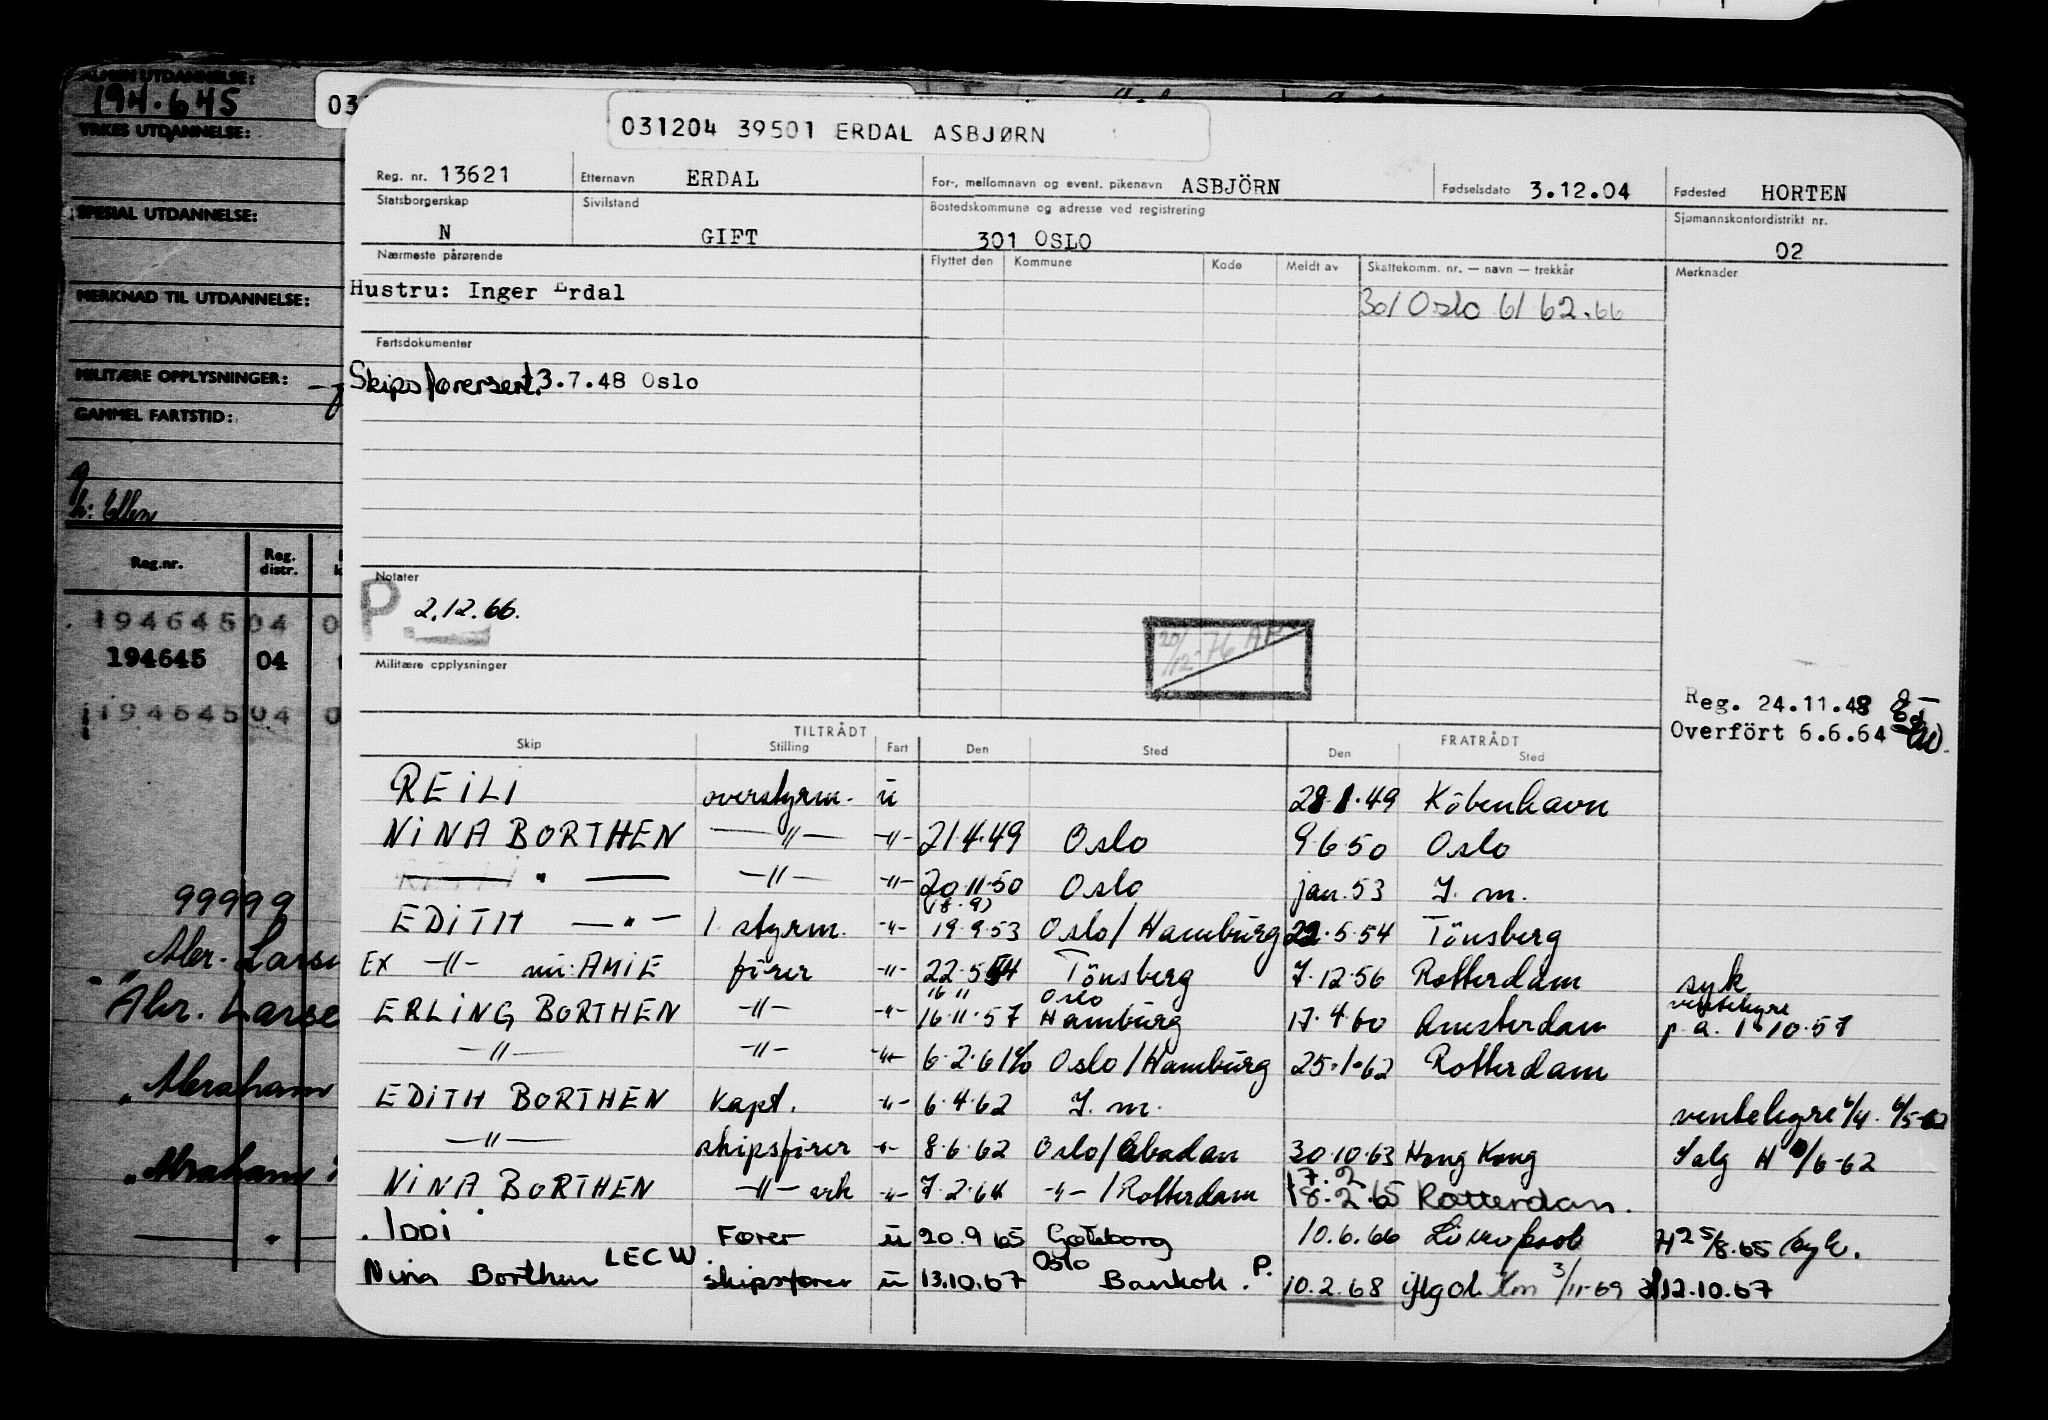 ALMEN UTDANNELSE:
194.645
YRKES UTDANNELSE:
SPESIAL UTDANNELSE:
MERKNAD TIL UTDANNELSE:
MILITÆRE OPPLYSNINGER:
GAMMEL FARTSTID:
Ellen
Reg.nr. Reg. distr.
194645 04 0
194645 04
194645 04 0
99999
Abr. Larse
Abraham
Abraham
03
031204 39501 ERDAL ASBJØRN
Reg. nr. 13621 Etternavn ERDAL For-, mellomnavn og event. pikenavn ASBJÖRN Fødselsdato 3.12.04 Fødested HORTEN
Statsborgerskap Sivilstand Bostedskommune og adresse ved registrering Sjømannskontordistrikt nr.
N GIFT 301 OSLO 02
Nærmeste pårørende Flyttet den Kommune Kode Meldt av Skattekomm. nr. — navn — trekkår Merknader
Hustru: Inger Erdal 301 Oslo 61 62.66
Fartsdokumenter
Skipsførersert. 3.7.48 Oslo
Notater
P. 2.12.66.
20/12-76
Militære opplysninger
Reg. 24.11.48
Overfört 6.6.64
TILTRÅDT FRATRÅDT
Skip Stilling Fart Den Sted Den Sted
REILI overstyrm. u 28.1.49 Köbenhavn
NINA BORTHEN —"— -"- 21.4.49 Oslo 9.6.50 Oslo
—— " —— —"— -"- 20.11.50 Oslo jan. 53 J. m.
(18.9)
EDITH —"— 1. styrm. -"- 19.9.53 Oslo/Hamburg 22.5.54 Tönsberg
EX —"— nu: AMIE förer -"- 22.5.54 Tönsberg 7.12.56 Rotterdam syk
16 11 Oslo ventehyre
ERLING BORTHEN —"— -"- 16.11.57 Hamburg 17.4.60 Amsterdam p.a. 1.10.57
—"— —"— -"- 6.2.61 Oslo/Hamburg 25.1.62 Rotterdam
EDITH BORTHEN Kapt. -"- 6.4.62 J. m. ventehyre 6/4. 6/5-62
—"— skipsförer -"- 8.6.62 Oslo/Abadan 30.10.63 Hong Kong Salg /6-62
17.2
NINA BORTHEN —"— vik -"- 7.2.64 -"-/Rotterdam 18.2.65 Rotterdam.
IDDI Fører u 20.9.65 Gøteborg 10.6.66 Liverpool H 25/8.65 syk.
LECW. Oslo P.
Nina Borthen skipsfører u 13.10.67 Bankok. 10.2.68 iflg 3/11-69 12.10.67